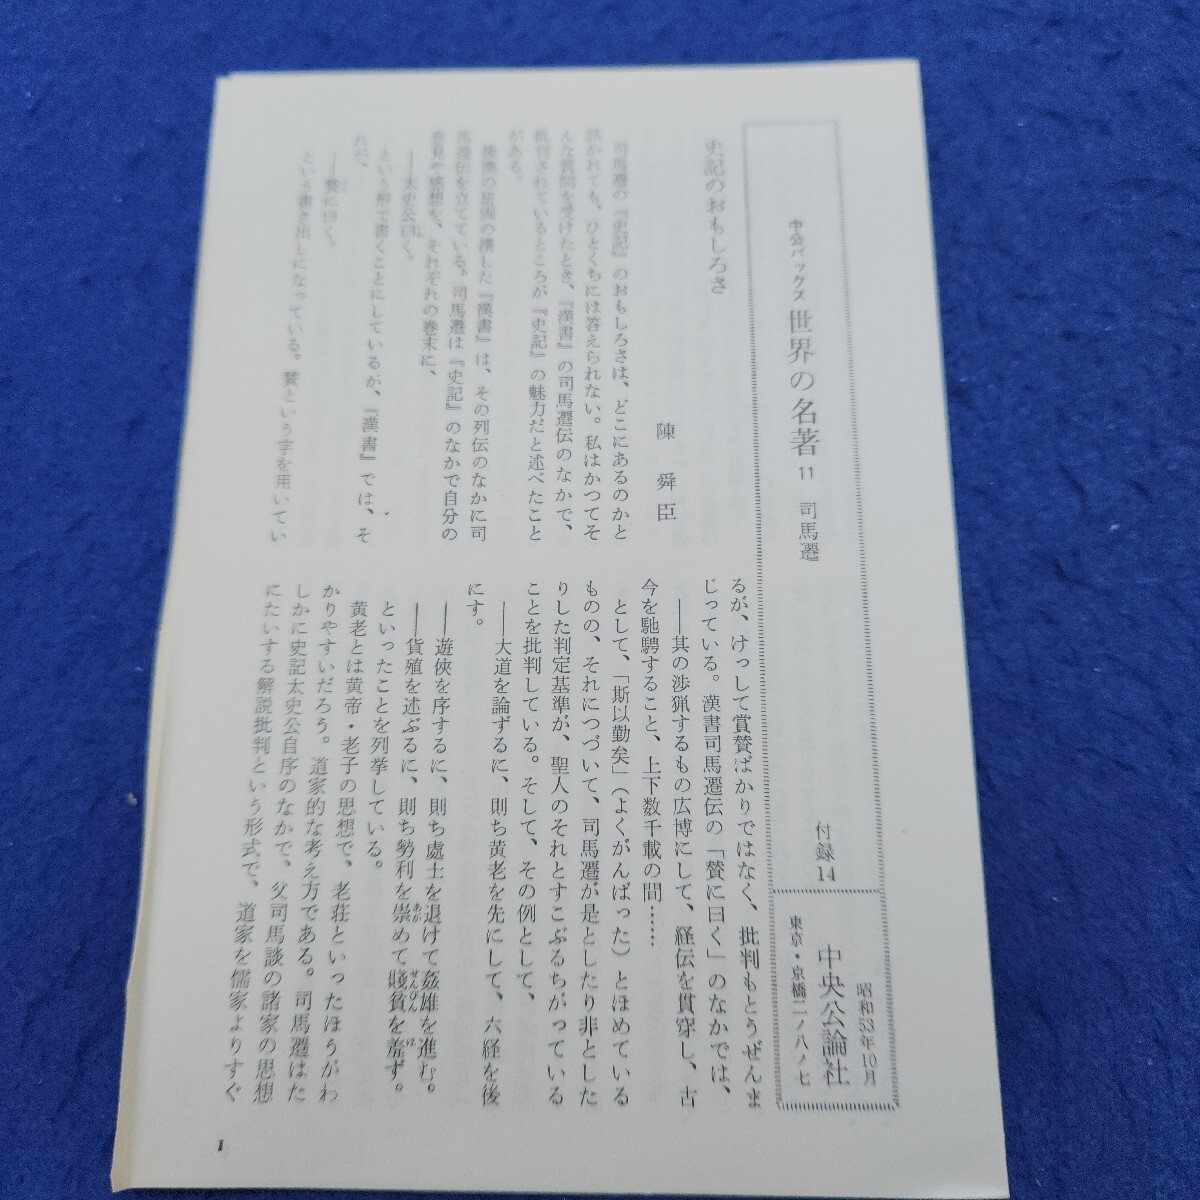 中公バックス 世界の名著 11 司馬遷
付録14
昭和53年10月
中央公論社
東京・京橋二ノ八ノ七
史記のおもしろさ
陳 舜臣
司馬遷の『史記』のおもしろさは、どこにあるのかと
訊かれても、ひとくちには答えられない。私はかつてそ
んな質問を受けたとき、『漢書』の司馬遷伝のなかで、
批判されているところが『史記』の魅力だと述べたこと
がある。
後漢の班固の撰した『漢書』は、その列伝のなかに司
馬遷伝を立てている。司馬遷は『史記』のなかで自分の
意見や感想を、それぞれの巻末に、
――太史公曰く。
という形で書くことにしているが、『漢書』では、そ
れが、
――賛に曰く。
という書き出しになっている。賛という字を用いてい
るが、けっして賞賛ばかりではなく、批判もとうぜんま
じっている。漢書司馬遷伝の「賛に曰く」のなかでは、
――其の渉猟するもの広博にして、経伝を貫穿し、古
今を馳騁すること、上下数千載の間……
として、「斯以勤矣」（よくがんばった）とほめている
ものの、それにつづいて、司馬遷が是としたり非とした
りした判定基準が、聖人のそれとすこぶるちがっている
ことを批判している。そして、その例として、
――大道を論ずるに、則ち黄老を先にして、六経を後
にす。
――遊俠を序するに、則ち處士を退けて姦雄を進む。
――貨殖を述ぶるに、則ち勢利を崇めて賤貧を羞ず。
といったことを列挙している。
黄老とは黄帝・老子の思想で、老荘といったほうがわ
かりやすいだろう。道家的な考え方である。司馬遷はた
しかに史記太史公自序のなかで、父司馬談の諸家の思想
にたいする解説批判という形式で、道家を儒家よりすぐ
1